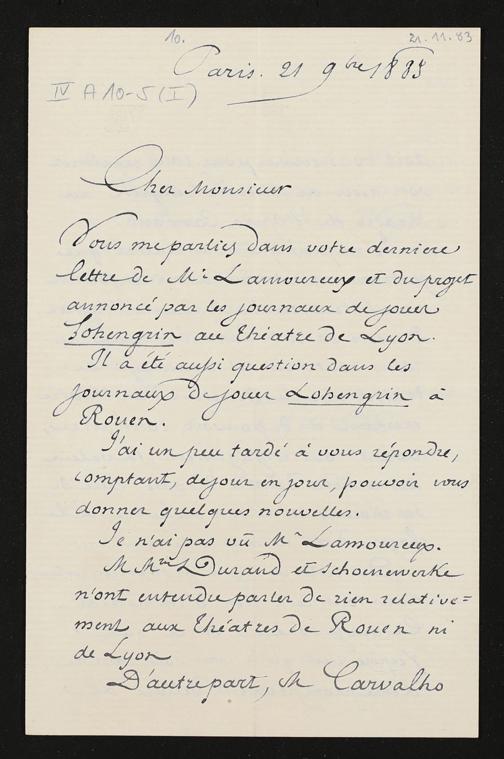 10.
21.11.83
Paris. 21 9bre 1883
IV A 10-5 (I)
Cher Monsieur
Vous me parliez dans votre derniere
lettre de Mr Lamoureux et du projet
annoncé par les journaux de jouer
Lohengrin au théatre de Lyon.
Il a été aussi question dans les
journaux de jouer Lohengrin à
Rouen.
J'ai un peu tardé à vous répondre,
comptant, de jour en jour, pouvoir vous
donner quelques nouvelles.
Je n'ai pas vû Mr Lamoureux.
M Mrs Durand et Schoenewerke
n'ont entendu parler de rien relative=
ment aux théatres de Rouen ni
de Lyon
D'autre part, M Carvalho